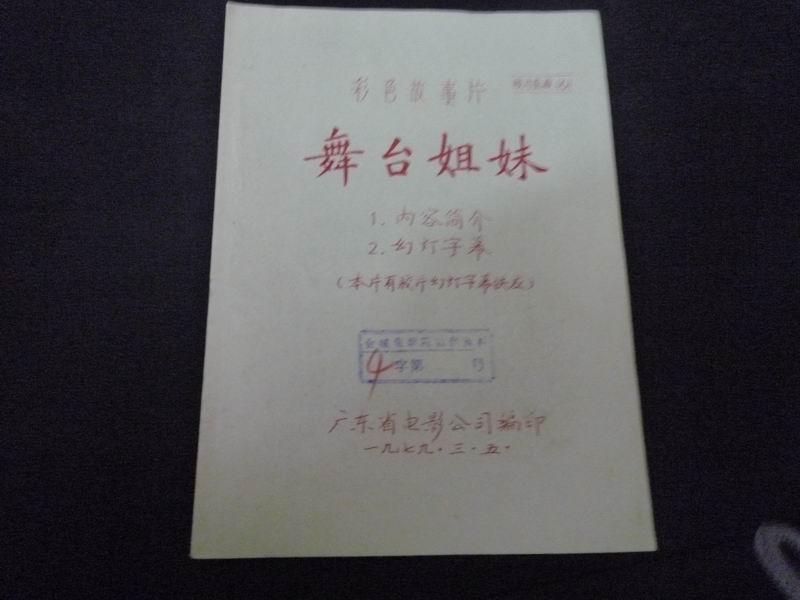 彩色故事片
舞台姐妹
1.内容简介
2.幻灯字幕
（本片有胶片幻灯字幕供应）
4字第 号
广东省电影公司编印
一九七九·三·五·